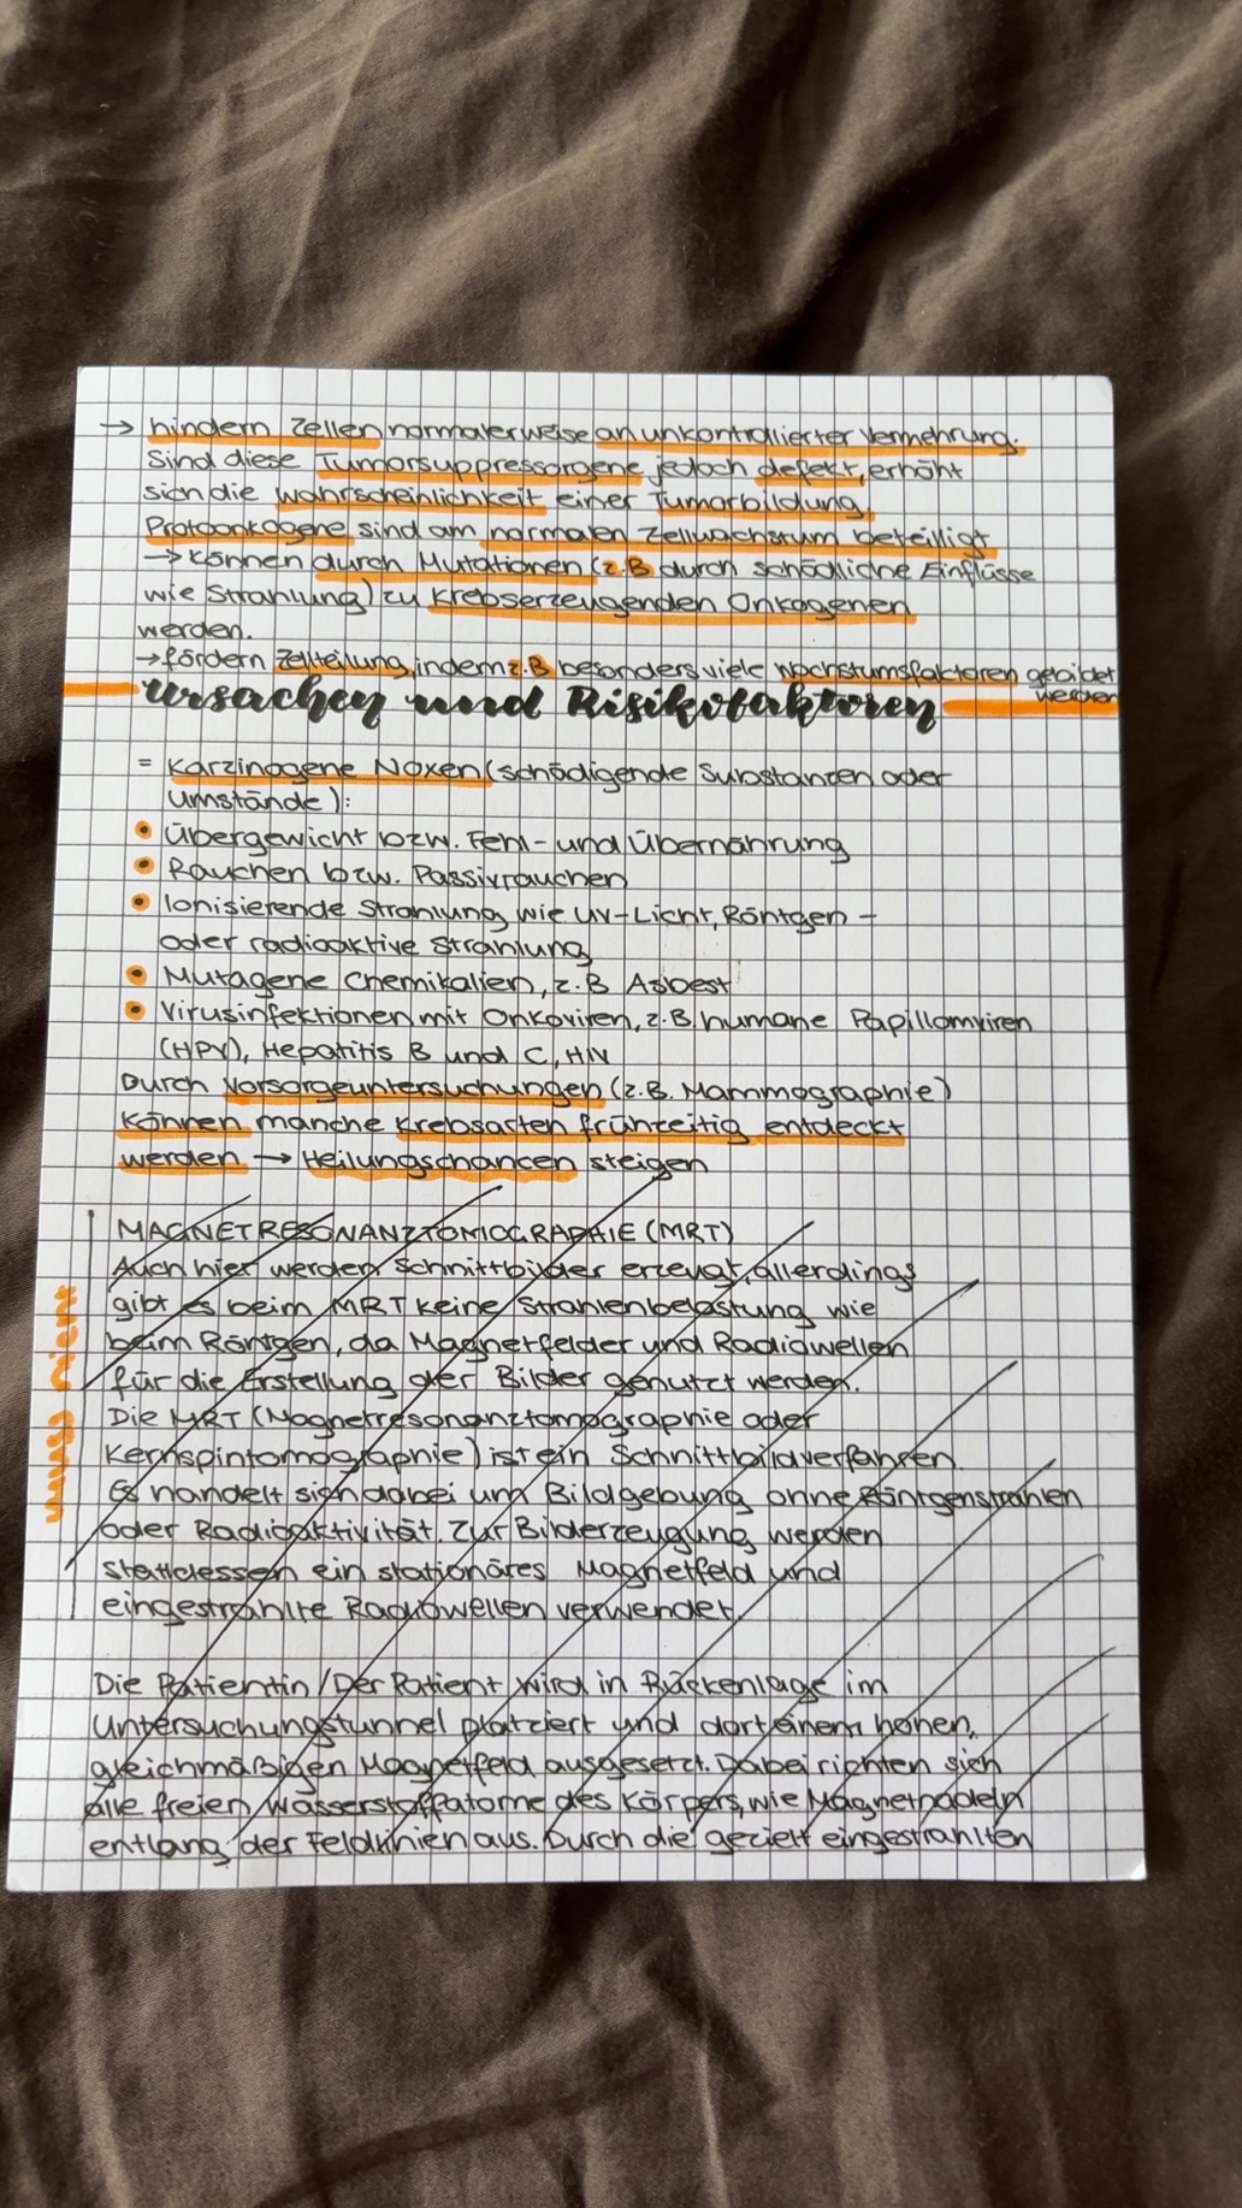 → hindern Zellen normalerweise an unkontrollierter Vermehrung.
Sind diese Tumorsuppressorgene jedoch defekt, erhöht
sich die Wahrscheinlichkeit einer Tumorbildung
Protoonkogene sind am normalen Zellwachstum beteiligt
→ können durch Mutationen (z.B durch schädliche Einflüsse
wie Strahlung) zu krebserzeugenden Onkogenen
werden.
→ fördern Zellteilung, indem z.B besonders viele Wachstumsfaktoren gebildet
werden
Ursachen und Risikofaktoren
= Karzinogene Noxen (schädigende Substanzen oder
Umstände):
• Übergewicht bzw. Fehl- und Übernährung
• Rauchen bzw. Passivrauchen
• Ionisierende Strahlung wie UV-Licht, Röntgen-
oder radioaktive Strahlung
• Mutagene Chemikalien, z.B Asbest
• Virusinfektionen mit Onkoviren, z.B humane Papillomviren
(HPV), Hepatitis B und C, HIV
Durch Vorsorgeuntersuchungen (z.B. Mammographie)
können manche Krebsarten frühzeitig entdeckt
werden → Heilungschancen steigen
muss nicht
MAGNETRESONANZTOMOGRAPHIE (MRT)
Auch hier werden Schnittbilder erzeugt, allerdings
gibt es beim MRT keine Strahlenbelastung wie
beim Röntgen, da Magnetfelder und Radiowellen
für die Erstellung der Bilder genutzt werden.
Die MRT (Magnetresonanztomographie oder
Kernspintomographie) ist ein Schnittbildverfahren.
Es handelt sich dabei um Bildgebung ohne Röntgenstrahlen
oder Radioaktivität. Zur Bilderzeugung werden
stattdessen ein stationäres Magnetfeld und
eingestrahlte Radiowellen verwendet.
Die Patientin/Der Patient wird in Rückenlage im
Untersuchungstunnel platziert und dort einem hohen,
gleichmäßigen Magnetfeld ausgesetzt. Dabei richten sich
alle freien Wasserstoffatome des Körpers, wie Magnetnadeln
entlang der Feldlinien aus. Durch die gezielt eingestrahlten